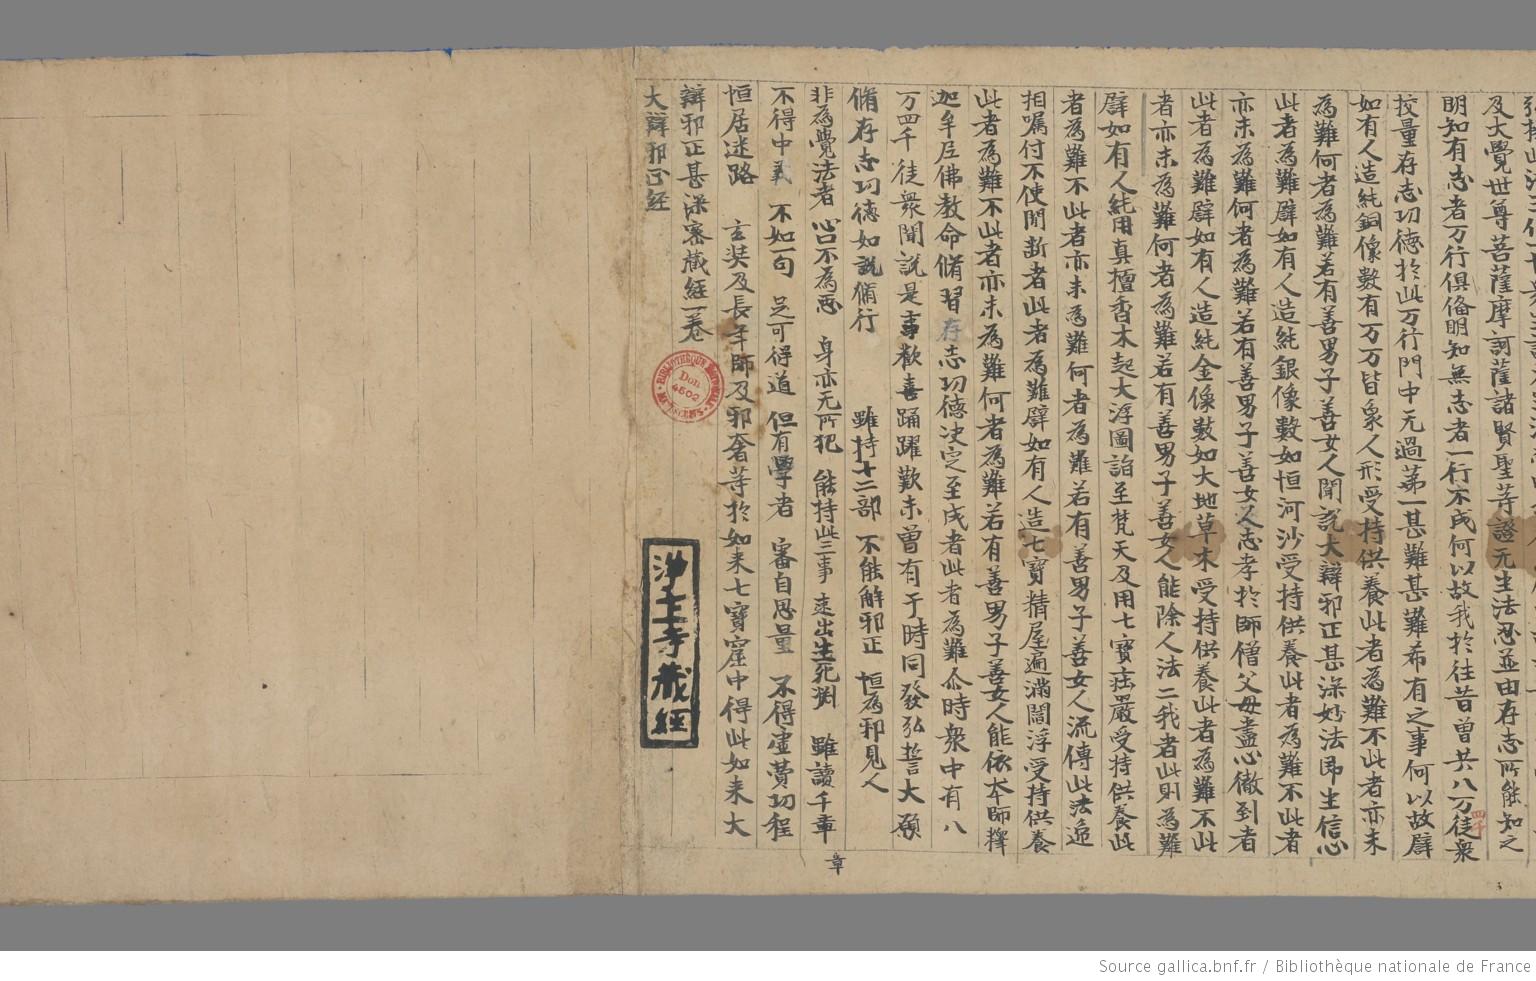 及大覺世尊菩薩摩訶薩諸賢聖等證无生法忍並由存志所能知之
明知有志者万行俱俻明知無志者一行不成何以故我於往昔曾共八万徒衆
四千
挍量存志功德於此万行門中无過第一甚難甚難希有之事何以故譬
如有人造純銅像數有万万皆象人形受持供養此者為難不此者亦未
為難何者為難若有善男子善女人聞說大辯邪正甚深妙法即生信心
此者為難譬如有人造純銀像數如恒河沙受持供養此者為難不此者
亦未為難何者為難若有善男子善女人志孝於師僧父母盡心徹到者
此者為難譬如有人造純金像數如大地草木受持供養此者為難不此
者亦未為難何者為難若有善男子善女人能除人法二我者此則為難
譬如有人純用真檀香木起大浮圖詣至梵天及用七寶莊嚴受持供養此
者為難不此者亦未為難何者為難若有善男子善女人流傳此法逓
相囑付不使閒斷者此者為難譬如有人造七寶精屋遍滿閻浮受持供養
此者為難不此者亦未為難何者為難若有善男子善女人能依本師釋
迦牟尼佛教命脩習存志功德决定至成者此者為難尒時衆中有八
万四千徒衆聞說是事歡喜踊躍歎未曾有于時同發弘誓大願
脩存志功德如說脩行 雖持十二部 不能解邪正 恒為邪見人
非為覺法者 心口不為惡 身亦无所犯 能持此三事 速出生死渕 雖讀千章
章
不得中義 不如一句 足可得道 但有學者 審自思量 不得虛費功程
恒居迷路 玄奘及長年師及邪奢等於如来七寶窟中得此如来大
辯邪正甚深審藏經一卷
大辯邪正經
淨土寺藏經
BIBLIOTHÈQUE NATIONALE
Don 4502
MANUSCRITS
Source gallica.bnf.fr / Bibliothèque nationale de France